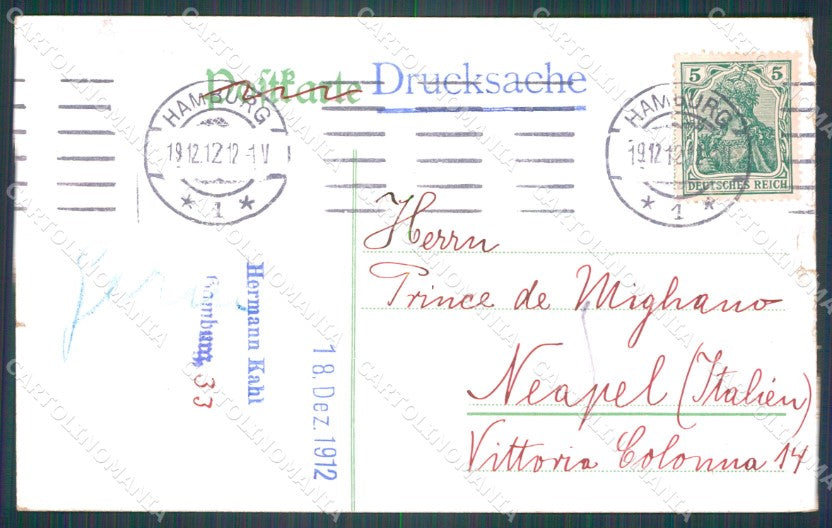 Postkarte Drucksache
HAMBURG
19.12.12.12-1V
* 1 *
HAMBURG
19.12.12.12
* 1 *
5 5
DEUTSCHES REICH
Herrn
Prince de Mighano
Neapel (Italien)
Vittoria Colonna 14
Hermann Kahl
Hamburg, 33
18. Dez. 1912
CARTOLINOMANIA